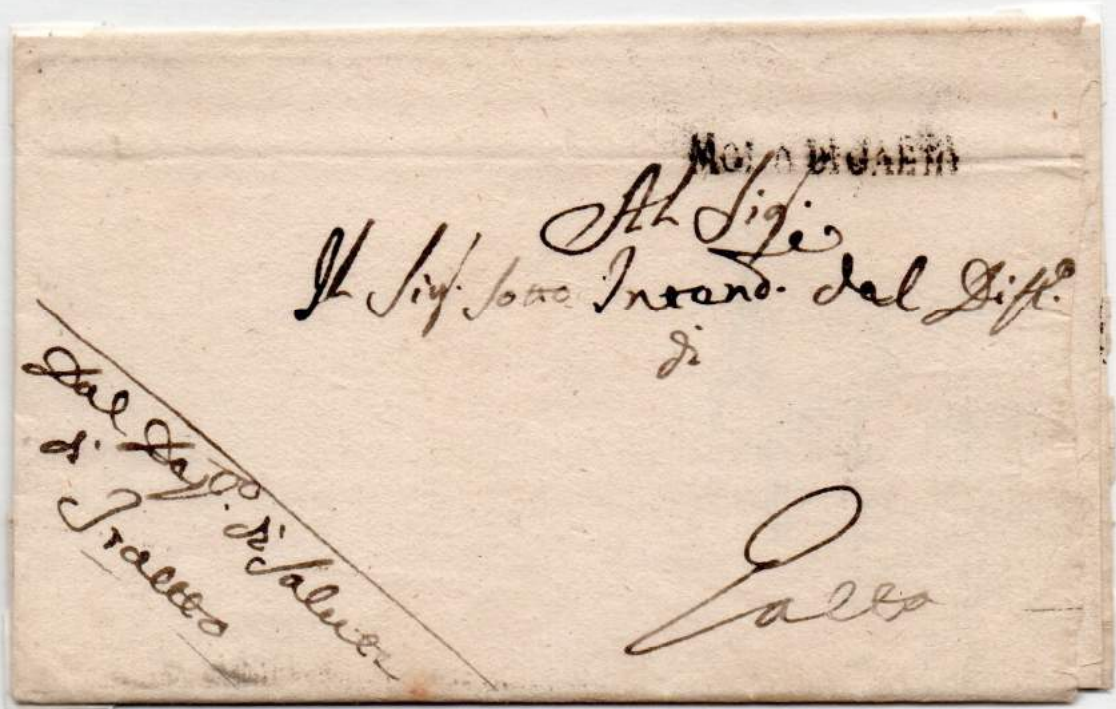 MOLA DI GAETA
Al Sig.e
Il Sig.r Sotto Intend. del Dist.o
di
Gaeta
Dal Dep.o di Salute
di
Traetto